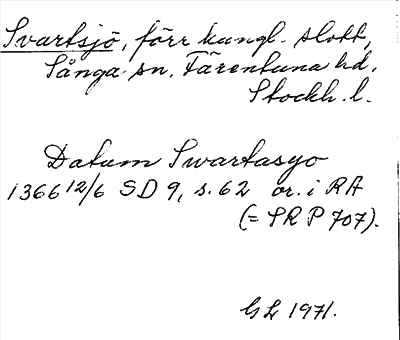 Svartsjö, förr kungl. slott,
Sånga sn. Färentuna hd.
Stockh. l.
Datum Swartasyo
1366 12/6 SD 9, s. 62 or. i RA
(= SRP 707).
GL 1971.